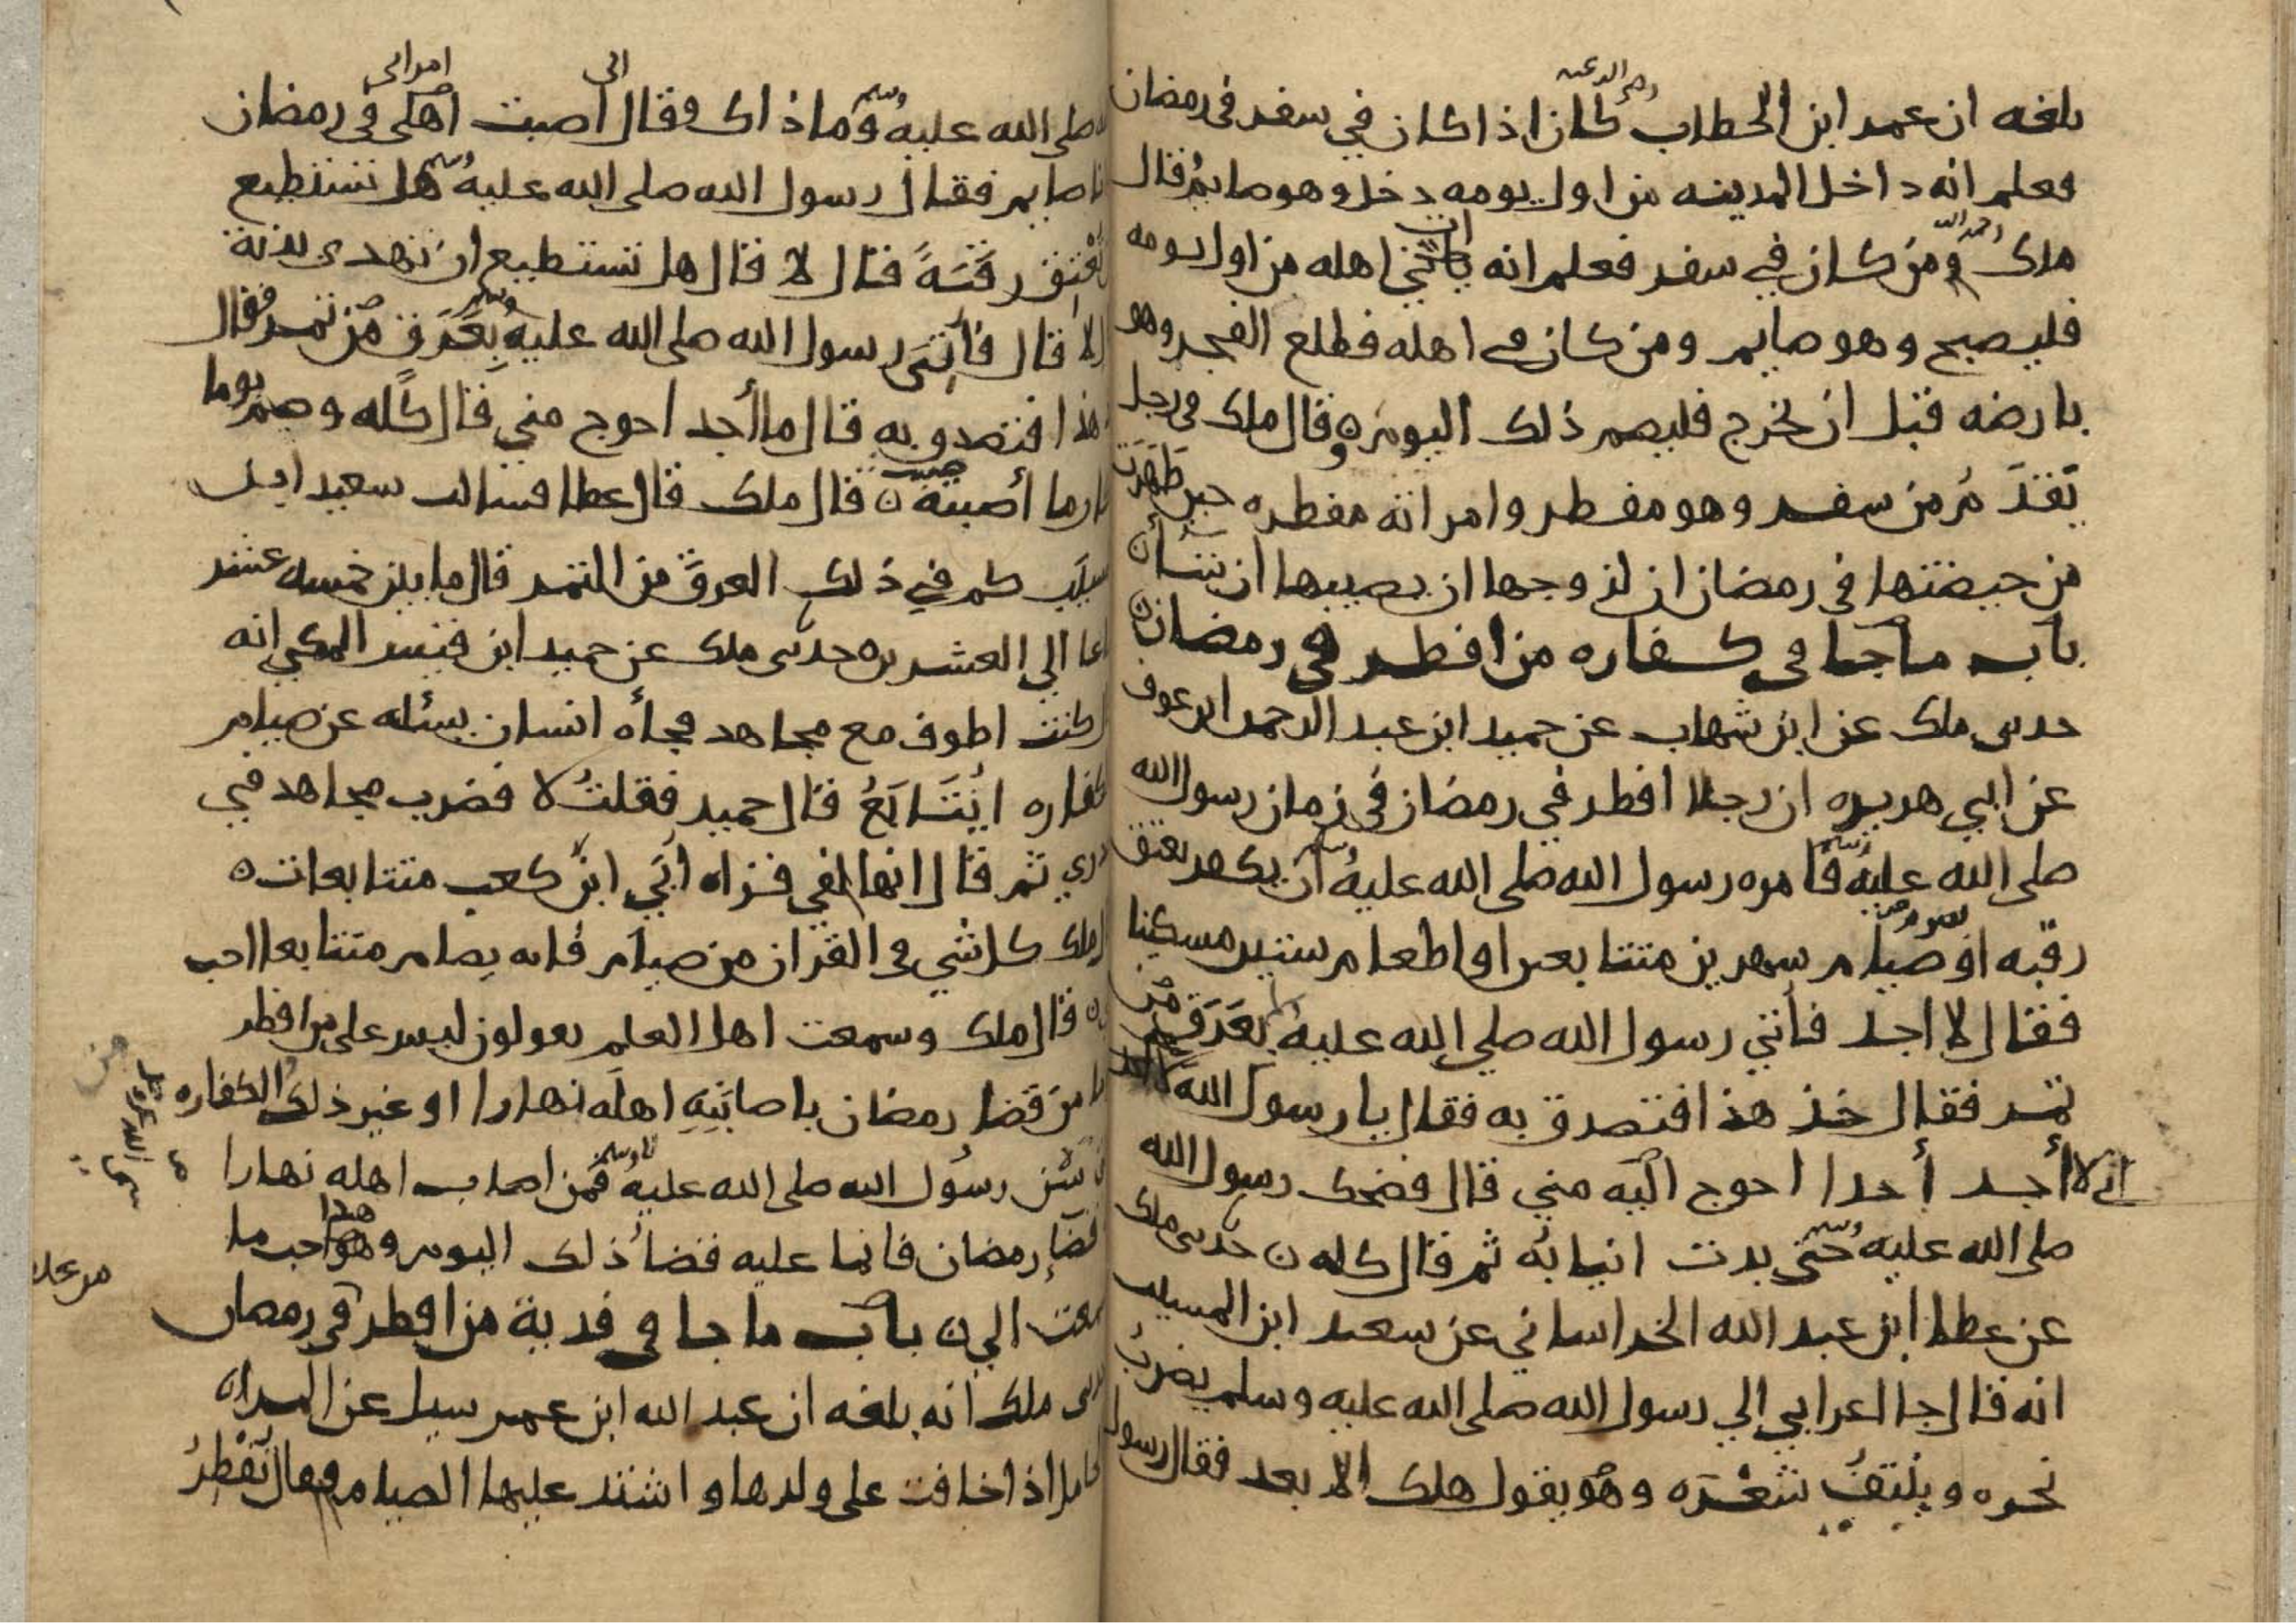 بلغه ان عمر ابن الخطاب رضي الله عنه كان اذا كان في سفر في رمضان
فعلم انه داخل المدينه من اول يومه دخل وهو صايم قال
ملك رحمه الله ومن كان في سفر فعلم انه اهله من اول يومه
فليصبح وهو صايم ومن كان في اهله فطلع الفجر وهو
بارضه قبل ان يخرج فليصم ذلك اليوم ه وقال ملك في رجل
يقدم من سفر وهو مفطر وامراته مفطره حين طهرت
من حيضتها في رمضان ان لزوجها ان يصيبها ان شا ن
باب ما جا في كفاره من افطر في رمضان ن
حدثني ملك عن ابن شهاب عن حميد ابن عبد الرحمن ابن عوف
عن ابي هريره ان رجلا افطر في رمضان في زمان رسول الله
صلى الله عليه وسلم فامره رسول الله صلى الله عليه وسلم ان يكفر بعتق
رقبه او صيام شهرين متتابعين او اطعام ستين مسكينا
فقال لا اجد فأتي رسول الله صلى الله عليه بعرق من
تمر فقال خذ هذا فتصدق به فقال يا رسول الله
اني لا أجد أحدا احوج اليه مني قال فضحك رسول الله
صلى الله عليه وسلم حتى بدت انيابه ثم قال كله ن حدثني ملك
عن عطا ابن عبد الله الخراساني عن سعيد ابن المسيب
انه قال جا اعرابي الي رسول الله صلى الله عليه وسلم يضرب
نحره وينتف شعره وهو يقول هلك الابعد فقال رسول
الله صلى الله عليه وسلم وما ذاك وقال اني اصبت اهلي امراتي في رمضان
انا صايم فقال رسول الله صلى الله عليه وسلم هل تستطيع
تعتق رقبة قال لا قال هل تستطيع ان تهدي بدنة
لا قال فأتي رسول الله صلى الله عليه وسلم بعرق من تمر فقال
هذا فتصدق به قال ما أجد احوج مني قال كله وصم يوما
ما أصبت ن قال ملك قال عطا فسالت سعيد ابن
المسيب كم في ذلك العرق من التمر قال ما بين خمسه عشر
صاعا الي العشرين ه حدثني ملك عن حميد ابن قيس المكي انه
قال كنت اطوف مع مجاهد فجأه انسان يسئله عن صيام
كفاره ايتابع قال حميد فقلت لا فضرب مجاهد في
صدري ثم قال انها لفي قراه أبي ابن كعب متتابعات ه
قال ملك كل شي في القران من صيام فانه يصام متتابعا احب
قال ملك وسمعت اهل العلم يقولون ليس على من افطر
يوما من قضا رمضان باصابته اهله نهارا او غير ذلك الكفاره
رسول الله صلى الله عليه وسلم فمن اصاب اهله نهارا
قضا رمضان فانما عليه قضا ذلك اليوم وهذا احب ما
سمعت الي ن باب ما جا في فدية من افطر في رمضان
حدثني ملك انه بلغه ان عبد الله ابن عمر سيل عن المراه
الحامل اذا خافت على ولدها واشتد عليها الصيام فقال تفطر